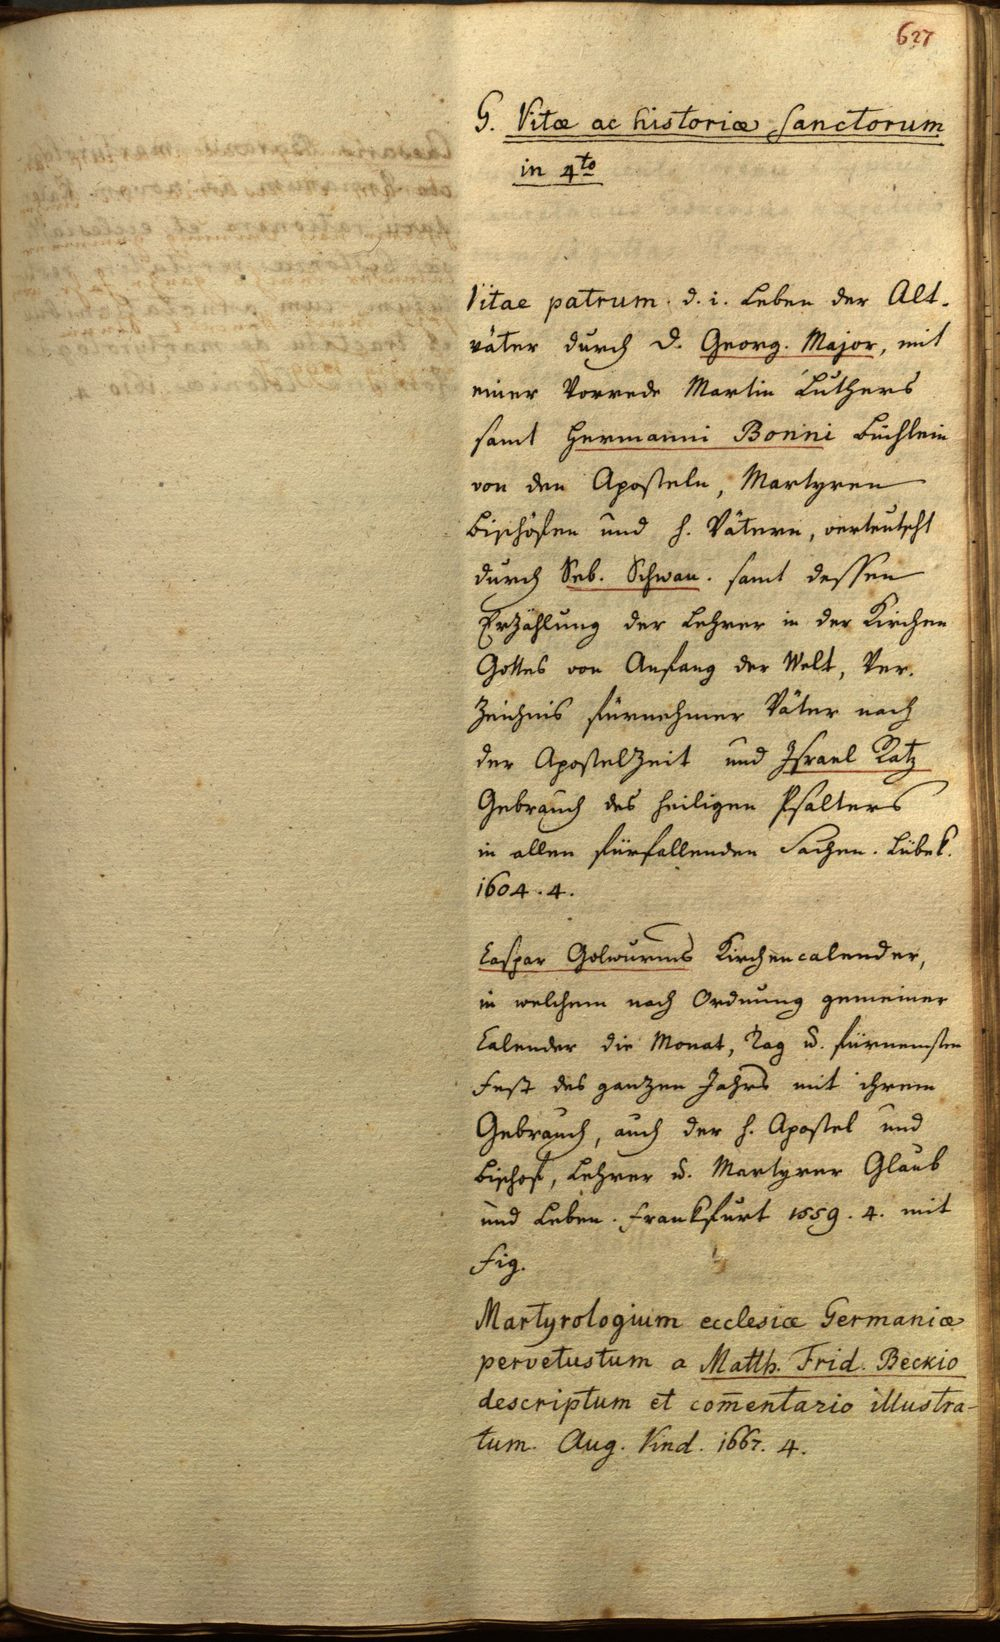 627
G. Vitæ ac historiæ Sanctorum
in 4to
Vitae patrum. d. i. Leben der Alt-
väter durch D. Georg. Major, mit
einer Vorrede Martin Luthers
samt Hermanni Bonni Büchlein
von den Aposteln, Martyren
Bischöfen und h. Vätern, verteutscht
durch Seb. Schwan. samt dessen
Erzählung der Lehrer in der Kirchen
Gottes von Anfang der Welt, Ver-
zeichnis fürnehmer Väter nach
der Apostelzeit und Israel Katz
Gebrauch des heiligen Psalters
in allen fürfallenden Sachen. Lübek.
1604. 4.
Caspar Golwurms Kirchencalender,
in welchem nach Ordnung gemeiner
Calender die Monat, Tag u. fürnemsten
Fest des ganzen Jahrs mit ihrem
Gebrauch, auch der h. Apostel und
Bischof, Lehrer u. Martyrer Glaub
und Leben. Frankfurt 1559. 4. mit
Fig.
Martyrologium ecclesiæ Germaniæ
pervetustum a Matth. Frid. Beckio
descriptum et com̄entario illustra-
tum. Aug. Vind. 1667. 4.